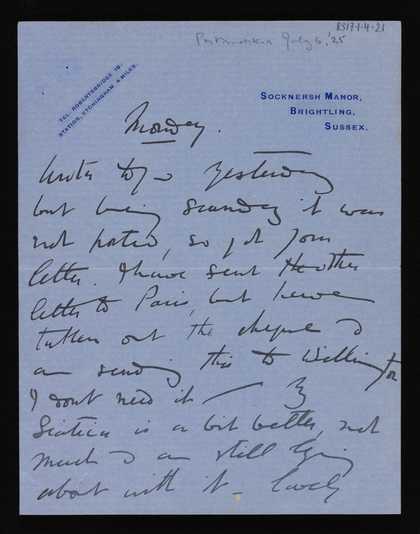 R317-1-4-21
Postmarked July 6, '25
TEL. ROBERTSBRIDGE 19.
STATION, ETCHINGHAM 4 MILES.
SOCKNERSH MANOR,
BRIGHTLING,
SUSSEX.
Monday.
Wrote to you yesterday
but being Sunday it was
not posted, so got your
letter. I have sent the other
letter to Paris, but have
taken out the cheque &
am sending this to Wellington
I dont need it – My
Sciatica is a bit better, not
much & am still lying
about with it – Lovely